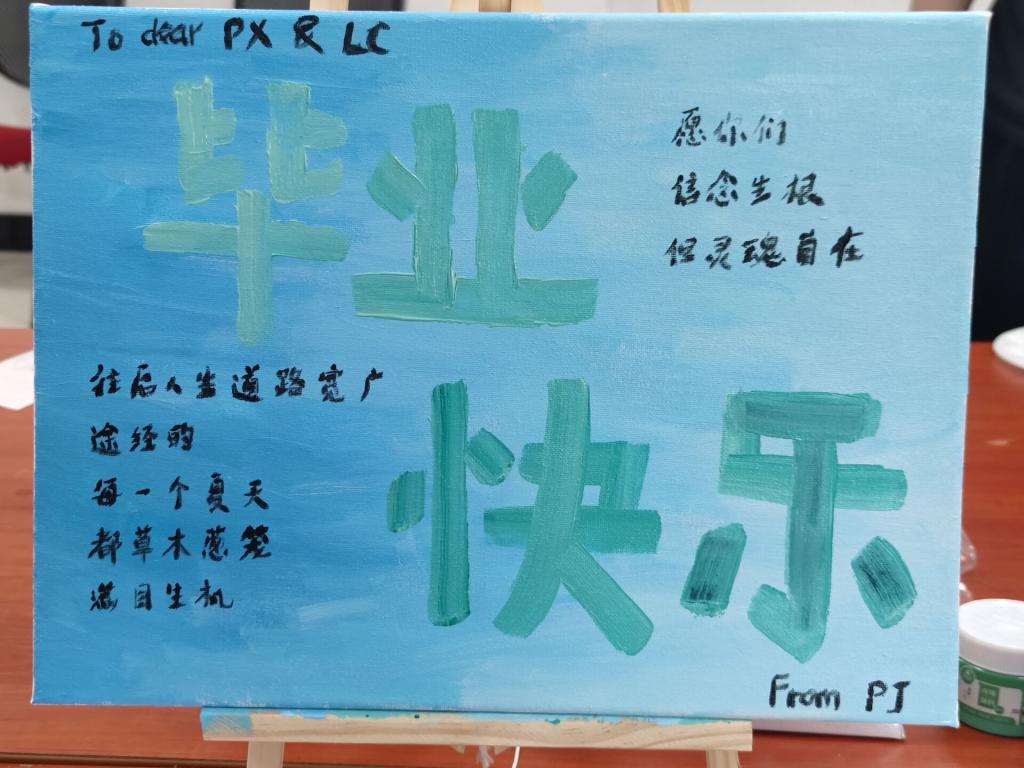 To dear PX & LC
毕业
愿你们
信念生根
但灵魂自在
往后人生道路宽广
途经的
每一个夏天
都草木葱笼
满目生机
快乐
From PJ